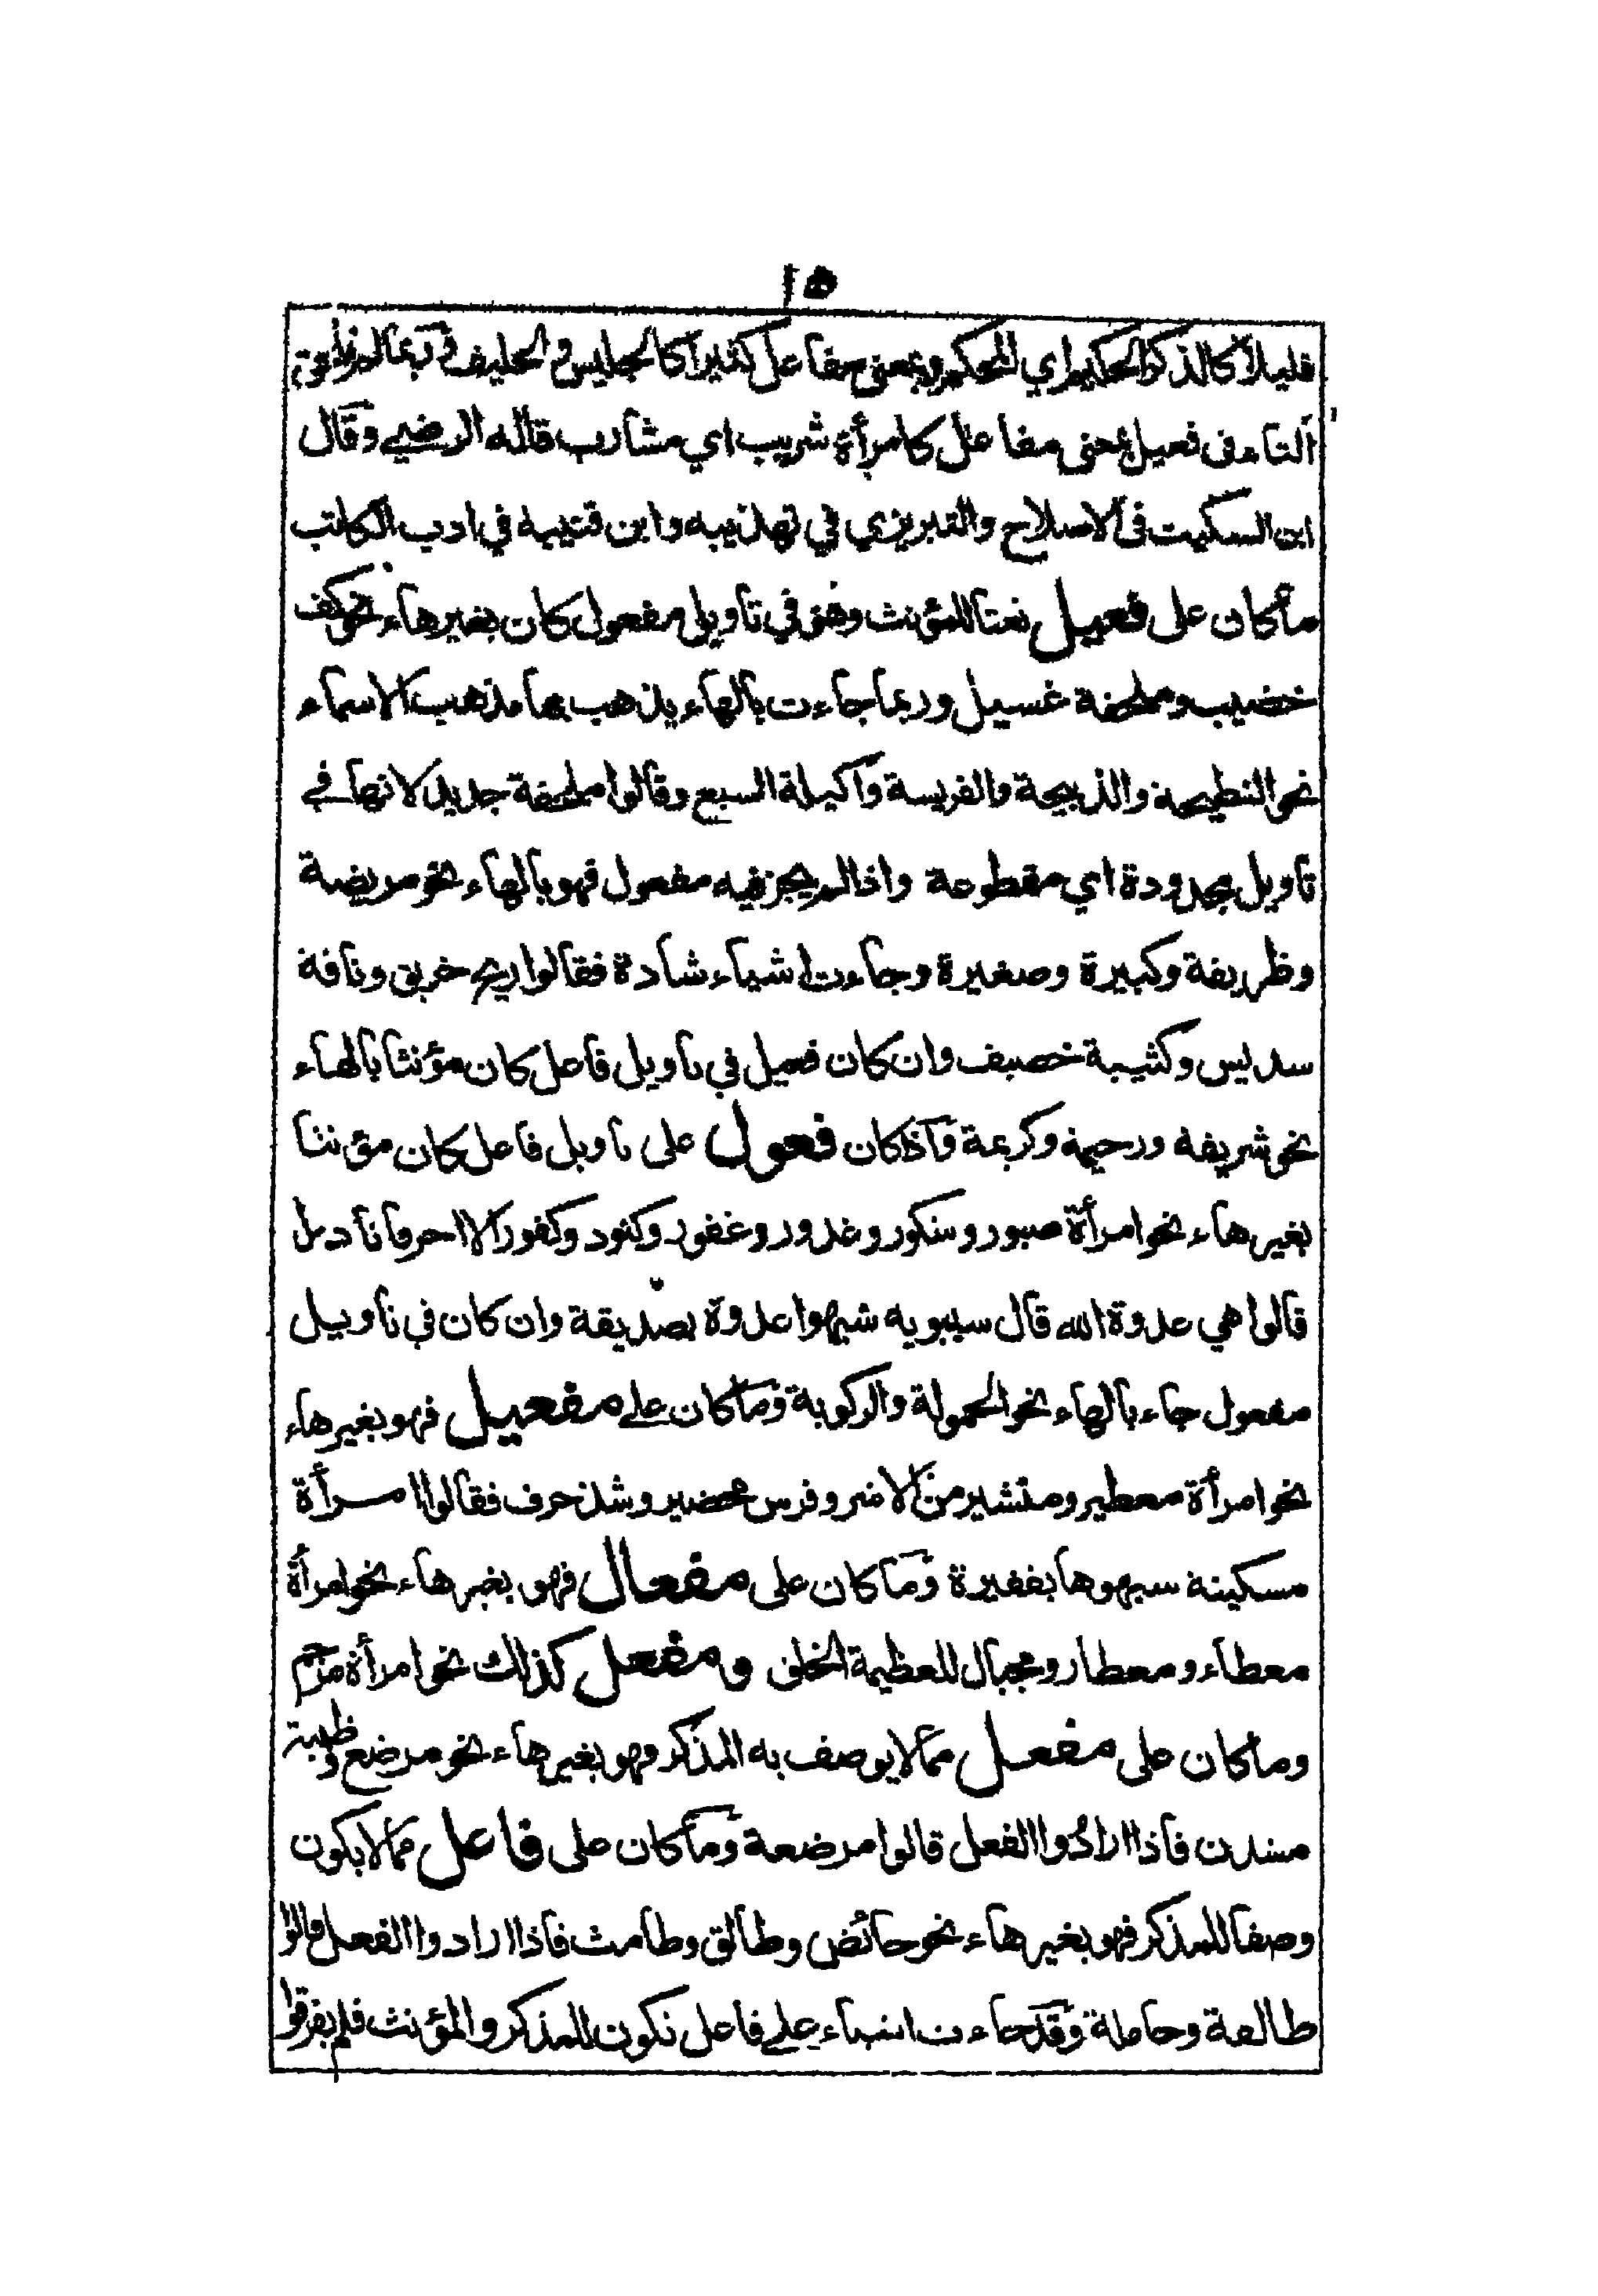 ١٥
قليلا كالذكر الحكيم اي المحكم وبمعنى مفاعل كثيرا كالجليس والحليف وربما
التاء في فعيل بمعنى مفاعل كامرأة شريب اي مشارب قاله الرضي وقال
ابن السكيت في الاصلاح والتبريزي في تهذيبه وابن قتيبة في ادب الكاتب
ما كان على فعيل نعتا للمؤنث وهو في تاويل مفعول كان بغير هاء نحو كف
خضيب وملحفة غسيل وربما جاءت بالهاء يذهب بها مذهب الاسماء
نحو النطيحة والذبيحة والفريسة واكيلة السبع وقالوا ملحفة جديد لانها في
تاويل مجدودة اي مقطوعة واذا لم يجز فيه مفعول فهو بالهاء نحو مريضة
وظريفة وكبيرة وصغيرة وجاءت اشياء شادة فقالوا ريح خريق وناقة
سديس وكتيبة خصيف وان كان فعيل في تاويل فاعل كان مؤنثا بالهاء
نحو شريفة ورحيمة وكريمة واذا كان فعول على تاويل فاعل كان مؤنثا
بغير هاء نحو امرأة صبور وشكور وغدور وغفور وكنود وكفور الا احرفا نادل
قالوا هي عدوة الله قال سيبويه شبهوا عدوة بصديقة وان كان في تاويل
مفعول جاء بالهاء نحو الحمولة والركوبة وما كان على مفعيل فهو بغير هاء
نحو امرأة معطير ومئشير من الاشر وفرس محضير وشذ حرف فقالوا امرأة
مسكينة شبهوها بفقيرة وما كان على مفعال فهو بغير هاء نحو امرأة
معطاء ومعطار ومجبال للعظيمة الخلق ومفعل كذلك نحو امرأة مرجم
وما كان على مفعل مما لا يوصف به المذكر فهو بغير هاء نحو مرضع وظبية
مشدن فاذا ارادوا الفعل قالوا مرضعة وما كان على فاعل مما لا يكون
وصفا للمذكر فهو بغير هاء نحو حائض وطالق وطامث فاذا ارادوا الفعل قالوا
طالقة وحاملة وقد جاءت اشياء على فاعل تكون للمذكر والمؤنث فلم يفرقوا